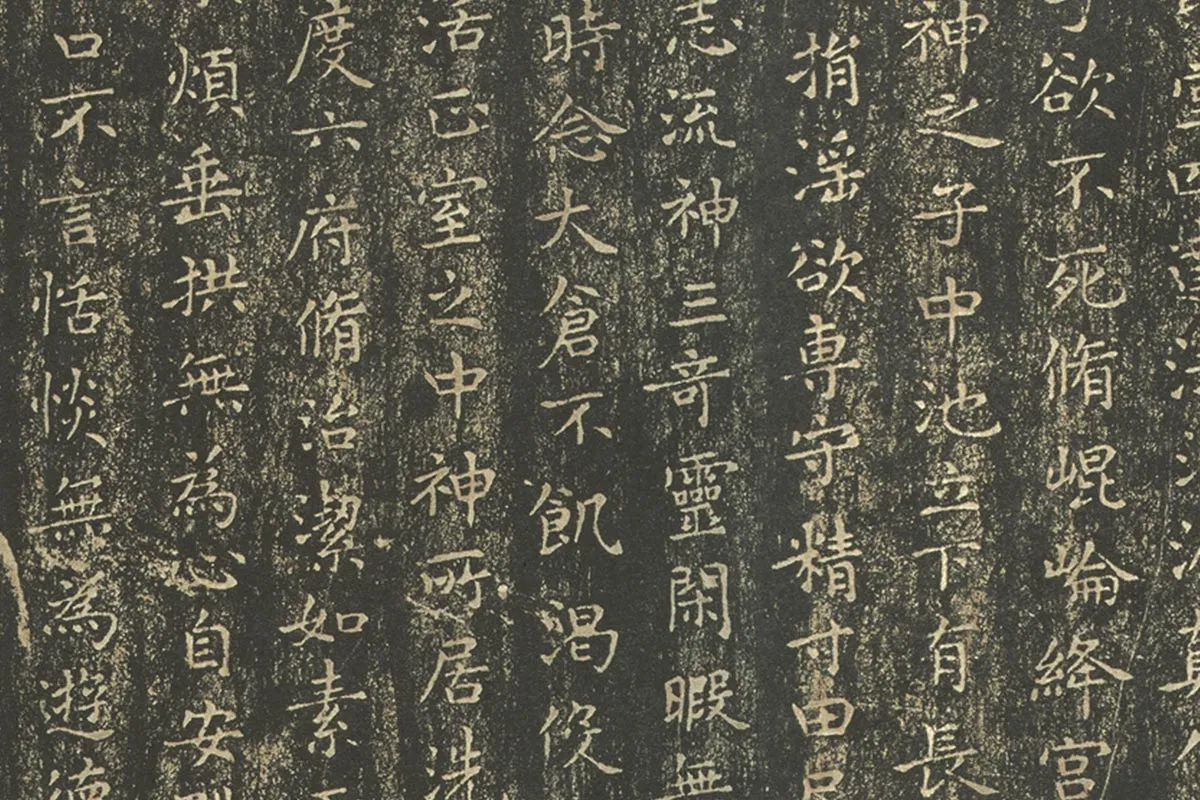 欲不死脩崐崘絳宮
神之子中池立下有長
捐滛欲専守精寸田尺
志流神三奇靈閑暇無
時念大倉不飢渴役
活正室之中神所居洗
度六府脩治潔如素
煩垂拱無為心自安
口不言恬惔無為遊德